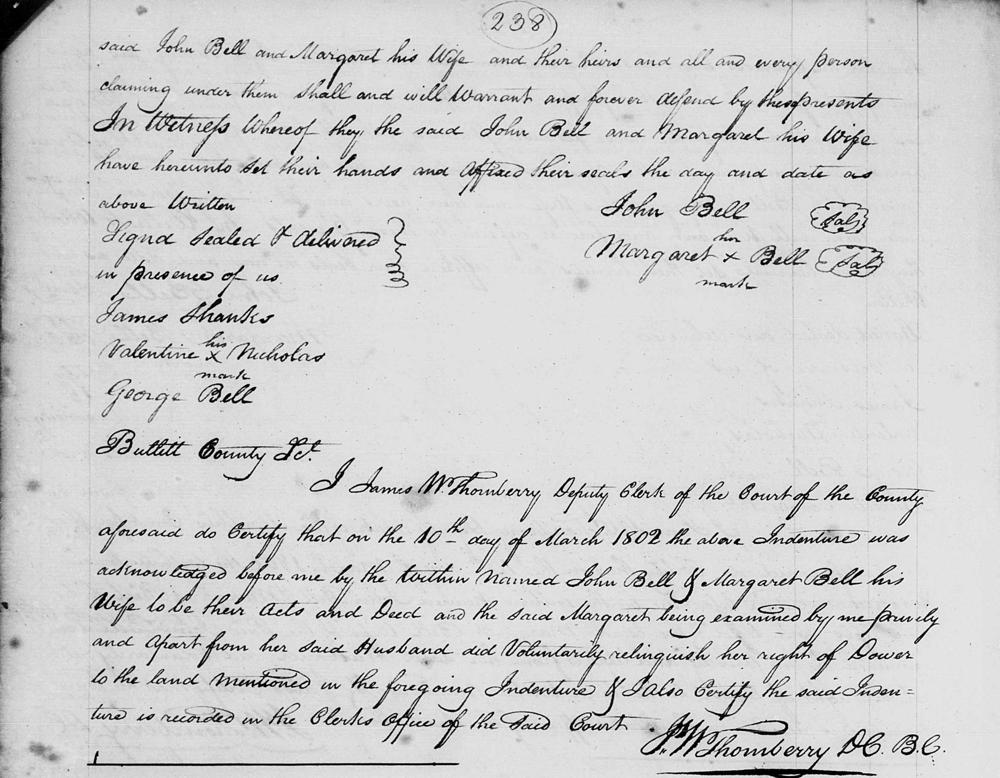 238
said John Bell and Margaret his Wife and their heirs and all and every person
claiming under them shall and will Warrant and forever defend by these presents
In Witness Whereof they the said John Bell and Margaret his Wife
have hereunto set their hands and affixed their seals the day and date as
above Written
John Bell Seal
Signd Sealed & delivered
in presence of us
Margaret her x mark Bell Seal
James Shanks
Valentine his x mark Nicholas
George Bell
Bullitt County Sct.
I James W. Thornberry Deputy Clerk of the Court of the County
aforesaid do Certify that on the 10th day of March 1802 the above Indenture was
acknowledged before me by the Within Named John Bell & Margaret Bell his
Wife to be their Acts and Deed and the said Margaret being examined by me privily
and apart from her said Husband did Voluntarily relinquish her right of Dower
to the land Mentioned in the foregoing Indenture & I also Certify the said Inden=
ture is recorded in the Clerks Office of the Said Court
J. W. Thornberry D.C. B.C.